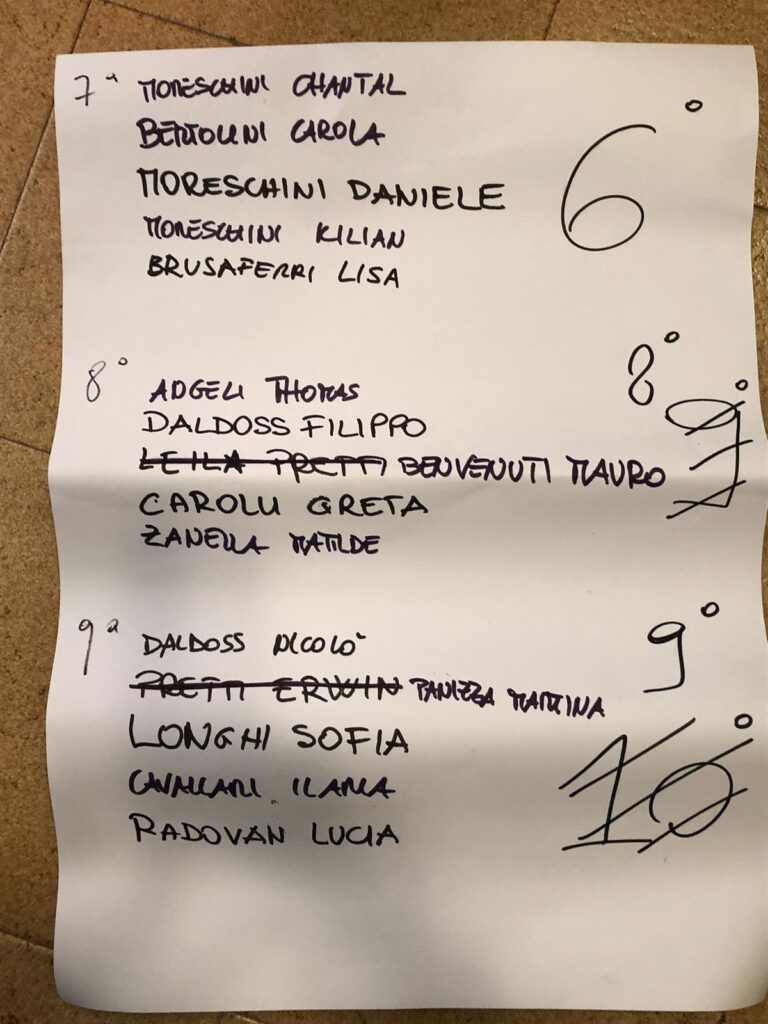 7ª MORESCHINI CHANTAL
BERTOLINI CAROLA
MORESCHINI DANIELE
6°
MORESCHINI KILIAN
BRUSAFERRI LISA
8° ADGELI THOMAS
8°
DALDOSS FILIPPO
9°
LEILA PRETTI BENVENUTI MAURO
CAROLLI GRETA
ZANELLA MATILDE
9ª DALDOSS NICOLÒ
9°
PRETTI ERWIN PANIZZA MARTINA
LONGHI SOFIA
10°
CAVALLARI ILARIA
RADOVAN LUCIA